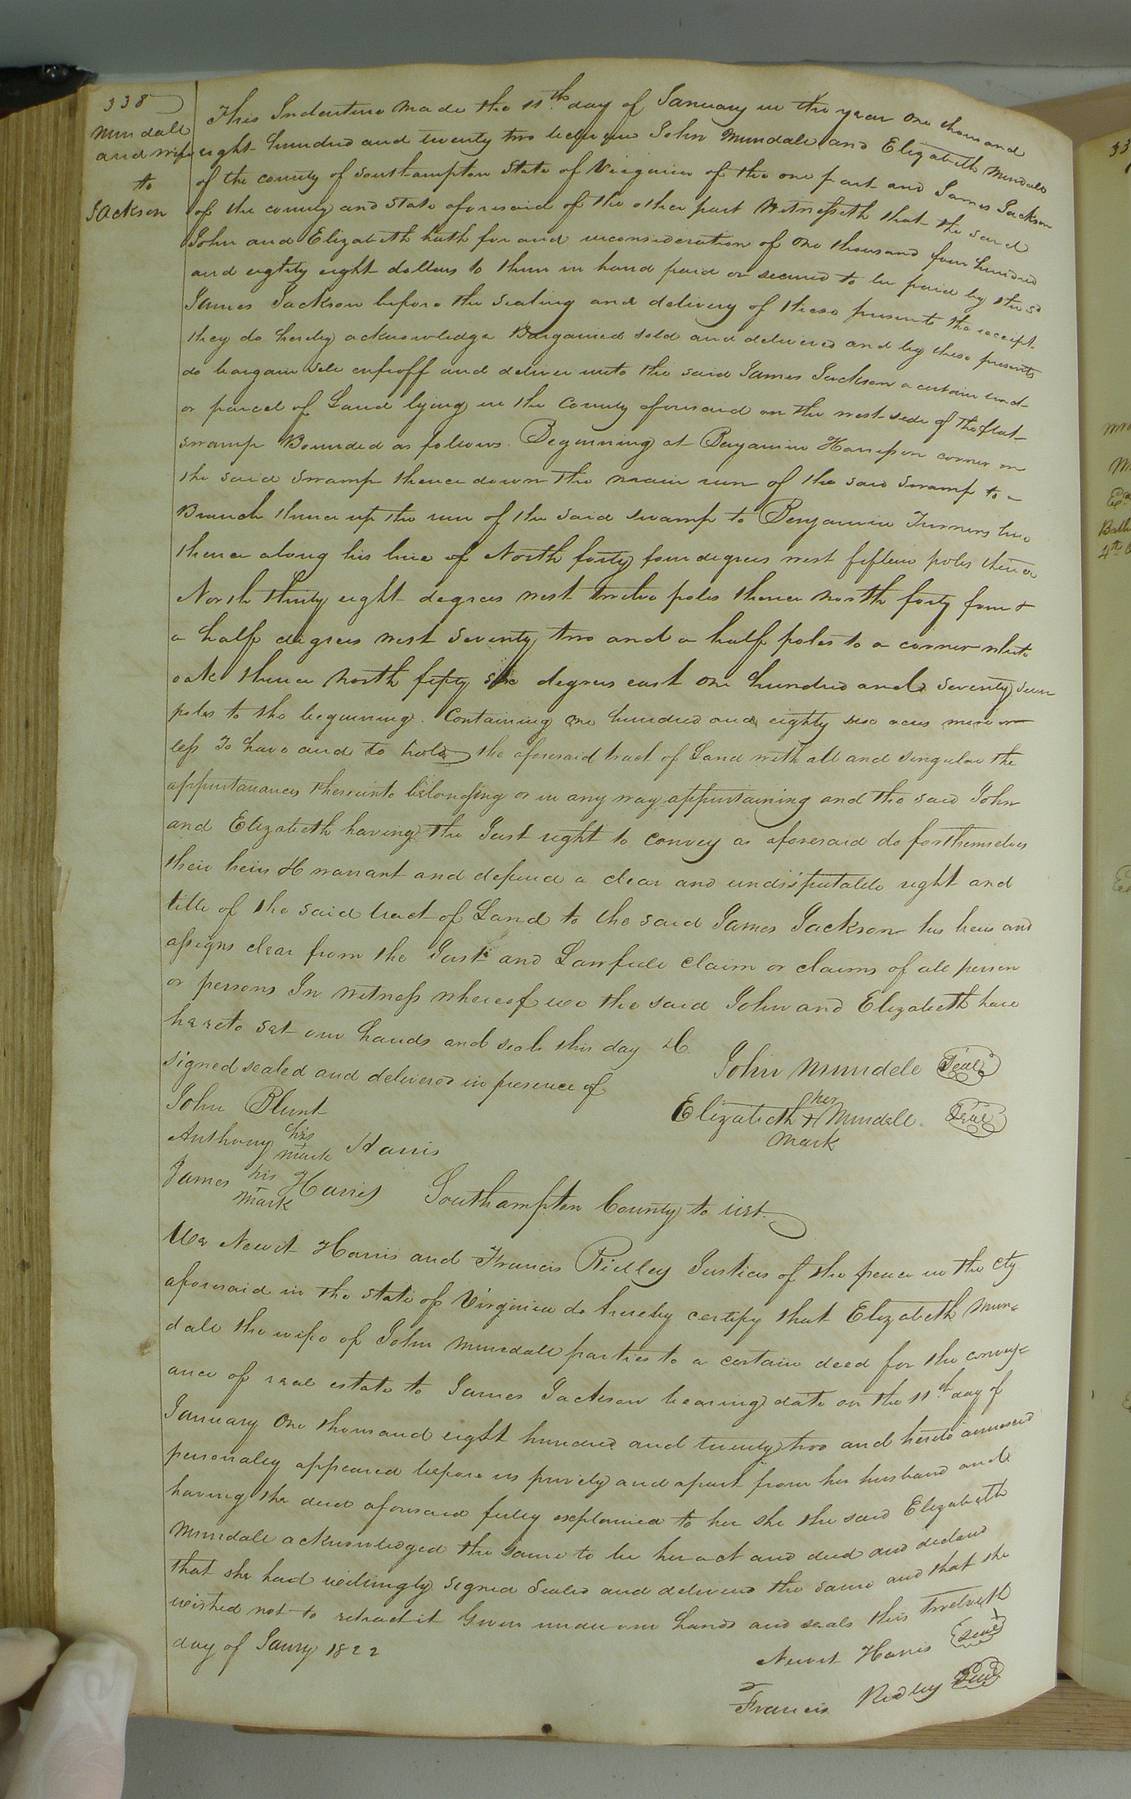 338
Mundale
and wife
to
Jackson
This Indenture made the 11th day of January in the year One thousand
eight hundred and twenty two between John Mundale and Elizabeth Mundale
of the county of Southampton State of Virginia of the one part and James Jackson
of the county and State aforesaid of the other part Witnesseth that the said
John and Elizabeth hath for and inconsideration of One thousand four hundred
and eightity eight dollars to them in hand paid or secured to be paid by the sd
James Jackson before the sealing and delivery of these presents the receipt
they do hereby acknowledge Bargained sold and delivered and by these presents
do bargain sell enfeoff and deliver unto the said James Jackson a certain tract
or parcel of Land lying in the County aforesaid on the west side of the flat
swamp Bounded as follows. Beginning at Benjamin Harrison corner on
the said swamp thence down the main run of the said swamp to a
Branch thence up the run of the said swamp to Benjamin Turners line
thence along his line of North forty four degrees west fifteen poles thence
North thirty eight degrees west twelve poles thence north forty four &
a half degrees west seventy two and a half poles to a corner white
oak thence north fifty six degrees east one hundred and seventy seven
poles to the beginning. Containing One hundred and eighty six acres more or
less To have and to hold the aforesaid tract of Land with all and singular the
appurtanances thereunto belonging or in any way appurtaining and the said John
and Elizabeth having the Just right to convey as aforesaid do forthemselves
their heirs &c warrant and defend a clear and undisputable right and
title of the said tract of Land to the said James Jackson his heirs and
assigns clear from the Just and Lawfull claim or claims of all person
or persons In witness whereof we the said John and Elizabeth have
hereto set our hands and seals this day &c
signed sealed and delivered in presence of
John Mundale Seal
Elizabeth her + Mundale Seal
mark
John Blunt
Anthony his + mark Harris
James his + mark Harris
Southampton County to wit.
We Newit Harris and Francis Ridley Justices of the peace in the cty
aforesaid in the state of Virginia do hereby certify that Elizabeth Mun
dale the wife of John Mundale parties to a certain deed for the convey
ance of real estate to James Jackson bearing date on the 11th day of
January One thousand eight hundred and twenty two and hereto annexed
personally appeared before us prively and apart from her husband and
having the deed aforesaid fully explained to her she the said Elizabeth
Mundale acknowledged the same to be her act and deed and declared
that she had willingly signed sealed and delivered the same and that she
wished not to retract it Given under our hands and seals this twelveth
day of Janry 1822
Newit Harris Seal
Francis Ridley Seal